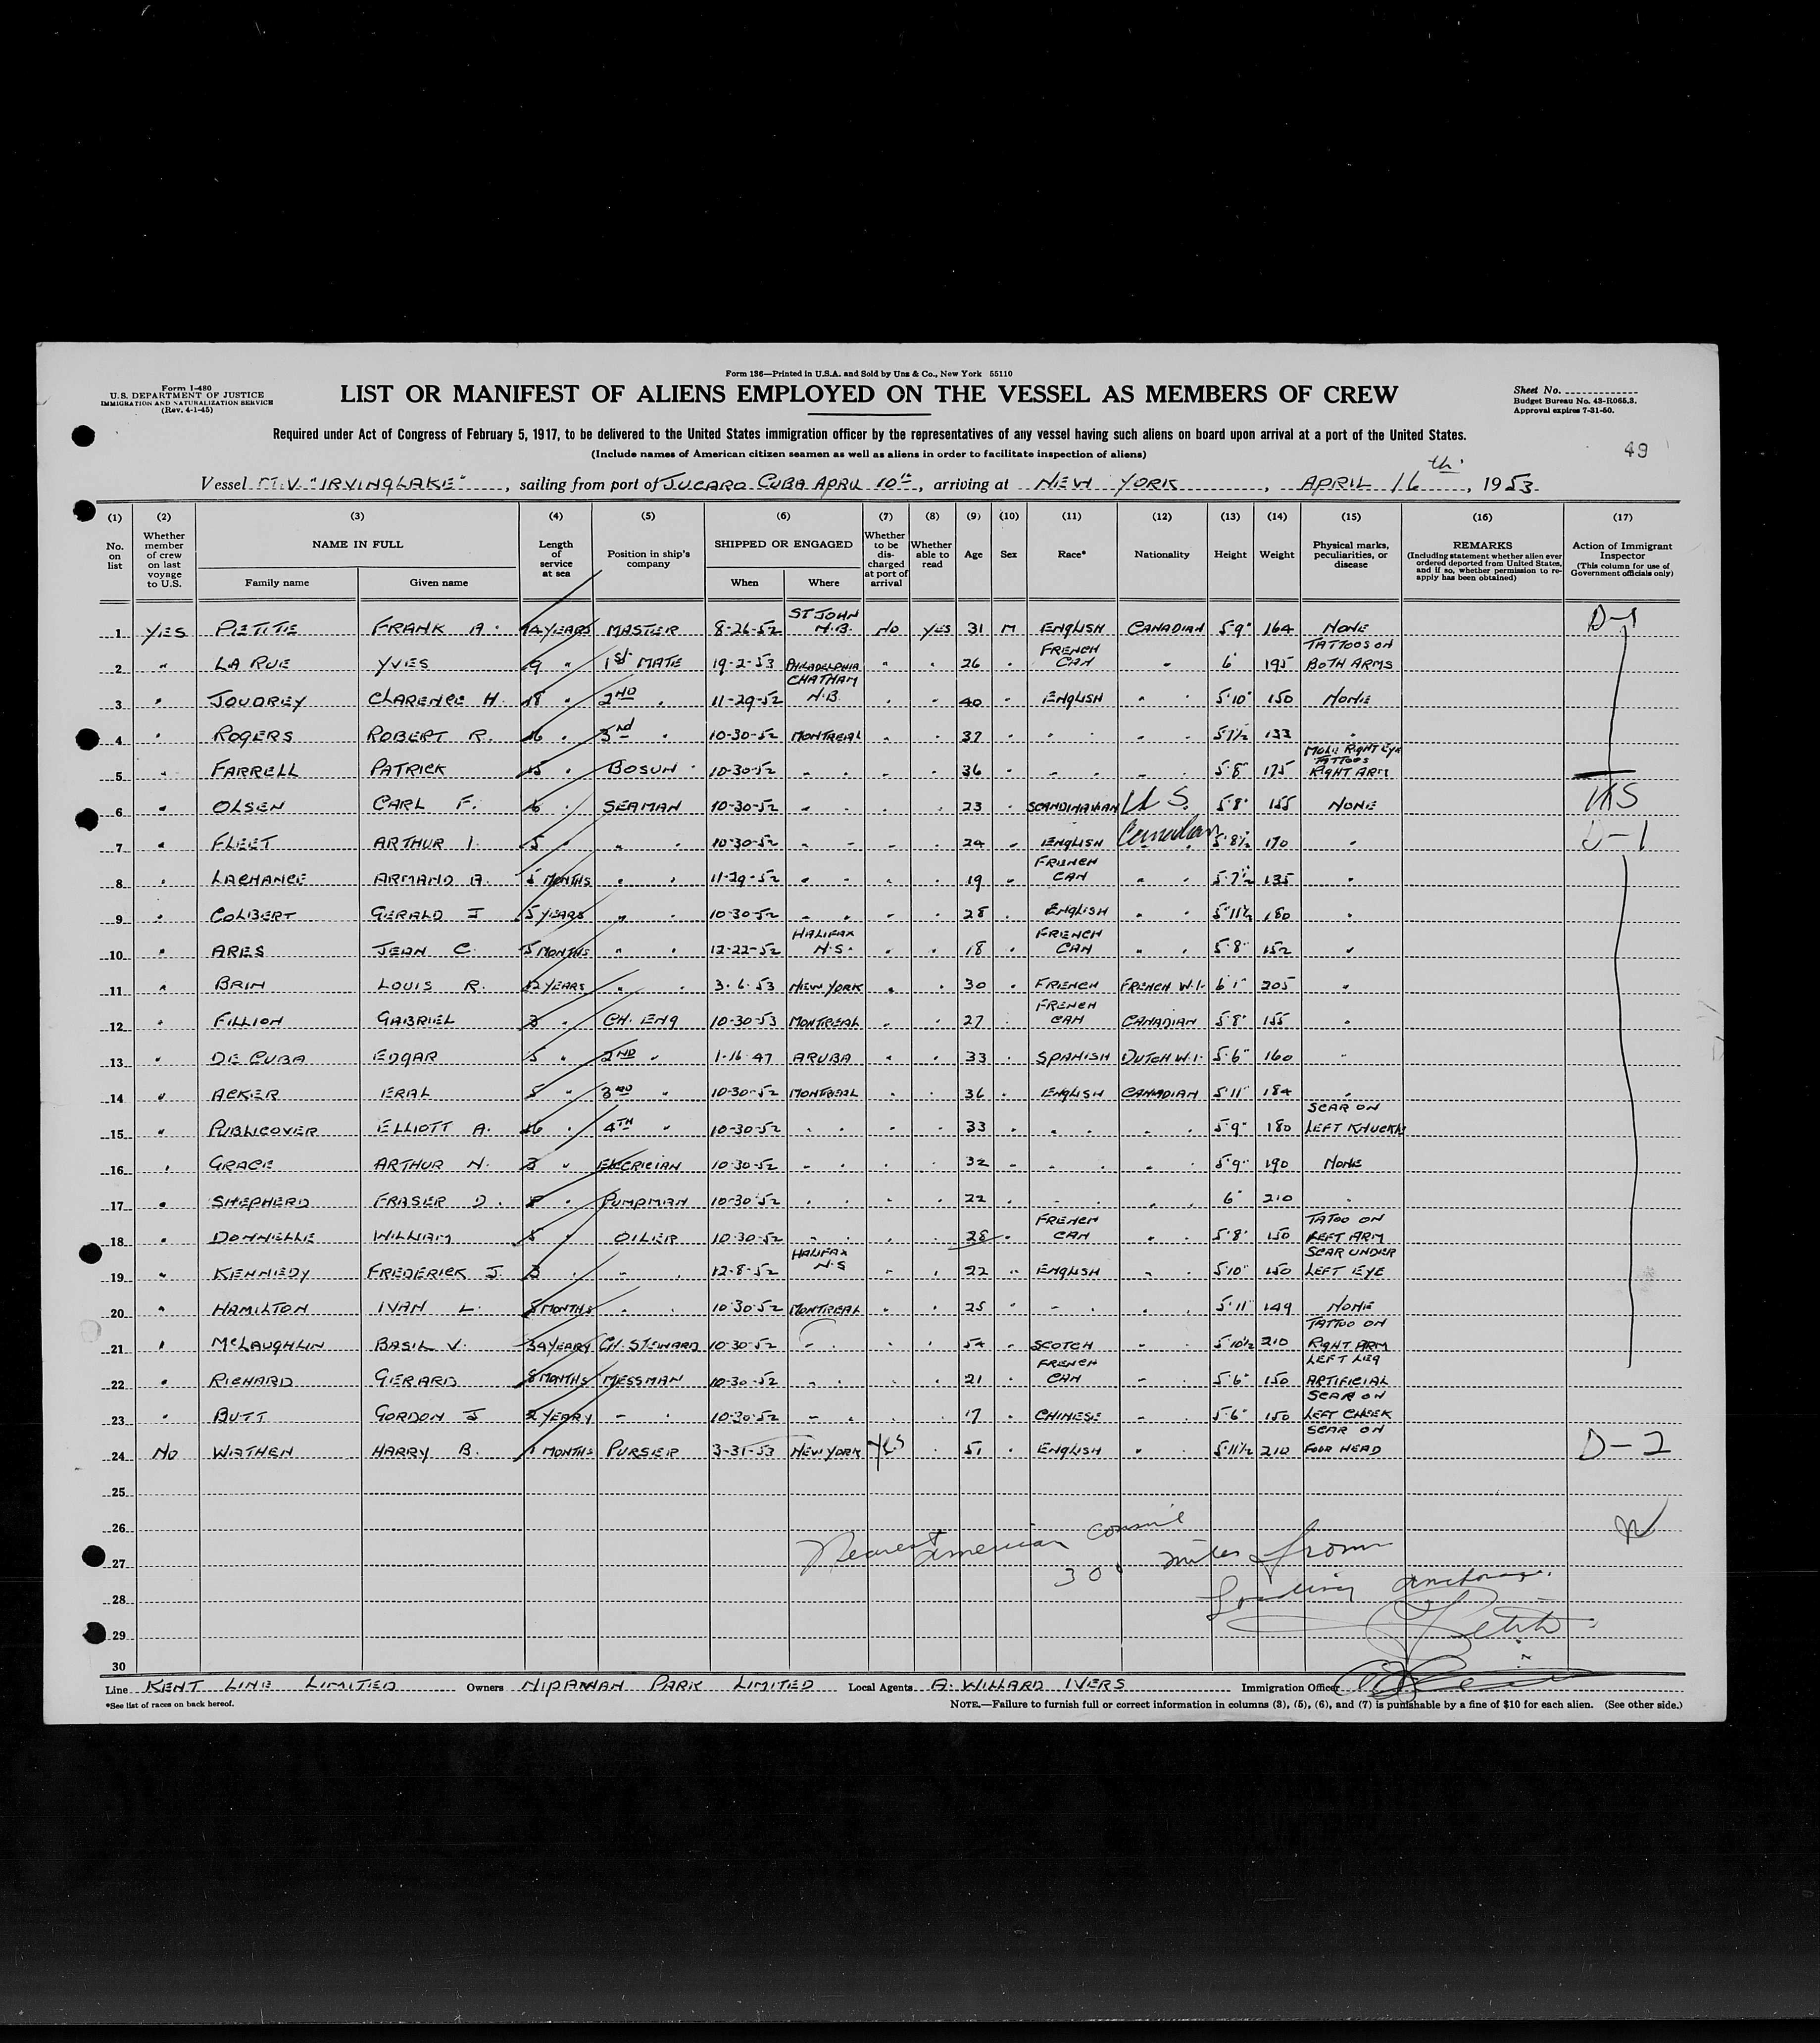 Form 136—Printed in U.S.A. and Sold by Unz & Co., New York 55110
Form I-480
U.S. DEPARTMENT OF JUSTICE
IMMIGRATION AND NATURALIZATION SERVICE
(Rev. 4-1-45)
LIST OR MANIFEST OF ALIENS EMPLOYED ON THE VESSEL AS MEMBERS OF CREW
Sheet No.
Budget Bureau No. 43-R065.3.
Approval expires 7-31-50.
Required under Act of Congress of February 5, 1917, to be delivered to the United States immigration officer by the representatives of any vessel having such aliens on board upon arrival at a port of the United States.
(Include names of American citizen seamen as well as aliens in order to facilitate inspection of aliens)
49
Vessel M.V. "IRVINGLAKE", sailing from port of JUCARO CUBA APRIL 10th, arriving at NEW YORK, APRIL 16th, 1953
(1) (2) (3) (4) (5) (6) (7) (8) (9) (10) (11) (12) (13) (14) (15) (16) (17)
No. on list
Whether member of crew on last voyage to U.S.
NAME IN FULL
Family name Given name
Length of service at sea
Position in ship's company
SHIPPED OR ENGAGED
When Where
Whether to be discharged at port of arrival
Whether able to read
Age Sex Race* Nationality Height Weight
Physical marks, peculiarities, or disease
REMARKS
(Including statement whether alien ever ordered deported from United States, and if so, whether permission to reapply has been obtained)
Action of Immigrant Inspector
(This column for use of Government officials only)
1 YES PETITE FRANK A. 14 YEARS MASTER 8-26-52 ST JOHN N.B. NO YES 31 M ENGLISH CANADIAN 5'9" 164 NONE D-1
2 " LA RUE YVES 9 " 1st MATE 19-2-53 PHILADELPHIA " " 26 " FRENCH CAN " 6' 195 TATTOOS ON BOTH ARMS
3 " JOUDREY CLARENCE H. 18 " 2ND " 11-29-52 CHATHAM N.B. " " 40 " ENGLISH " 5'10" 150 NONE
4 " ROGERS ROBERT R. 16 " 3nd " 10-30-52 MONTREAL " " 37 " " " 5'7½ 133 "
5 " FARRELL PATRICK 15 " BOSUN 10-30-52 " " " 36 " " " 5'8" 175 MOLE RIGHT EYE TATTOOS RIGHT ARM
6 " OLSEN CARL F. 6 " SEAMAN 10-30-52 " " " 23 " SCANDINAVIAN U S. 5'8" 155 NONE
7 " FLEET ARTHUR I. 5 " " 10-30-52 " " " 24 " ENGLISH Canadian 5'8½ 170 " D-1
8 " LACHANCE ARMAND A. 5 MONTHS " 11-29-52 " " " 19 " FRENCH CAN " 5'7½ 135 "
9 " COLBERT GERALD J 5 YEARS " 10-30-52 " " " 28 " ENGLISH " 5'11½ 180 "
10 " ARES JEAN C. 5 MONTHS " 12-22-52 HALIFAX N.S. " " 18 " FRENCH CAN " 5'8" 152 "
11 " BRIN LOUIS R. 12 YEARS " 3-6-53 NEW YORK " " 30 " FRENCH FRENCH W.I. 6'1" 205 "
12 " FILLION GABRIEL 3 " CH. ENG 10-30-53 MONTREAL " " 27 " FRENCH CAN CANADIAN 5'8" 155 "
13 " DE CUBA EDGAR 5 " 2ND " 1-16-47 ARUBA " " 33 " SPANISH DUTCH W.I. 5'6" 160 "
14 " ACKER ERAL 5 " 3RD " 10-30-52 MONTREAL " " 36 " ENGLISH CANADIAN 5'11" 184 "
15 " PUBLICOVER ELLIOTT A. 16 " 4TH " 10-30-52 " " " 33 " " " 5'9" 180 SCAR ON LEFT KNUCKLE
16 " GRACE ARTHUR N. 3 " ELECRICIAN 10-30-52 " " " 32 " " " 5'9" 190 NONE
17 " SHEPHERD FRASER D. " PUMPMAN 10-30-52 " " " 22 " " " 6" 210 "
18 " DONNELLE WILLIAM 5 " OILER 10-30-52 " " " 28 " FRENCH CAN " 5'8" 150 TATOO ON LEFT ARM
19 " KENNEDY FREDERICK J. 3 " " 12-8-52 HALIFAX N.S " " 22 " ENGLISH " 5'10" 150 SCAR UNDER LEFT EYE
20 " HAMILTON IVAN L. 8 MONTHS " 10-30-52 MONTREAL " " 25 " " " 5'11" 149 NONE
21 " McLAUGHLIN BASIL V. 34 YEARS CH. STEWARD 10-30-52 " " " 54 " SCOTCH " 5'10½ 210 TATTOO ON RIGHT ARM
22 " RICHARD GERARD 8 MONTHS MESSMAN 10-30-52 " " " 21 " FRENCH CAN " 5'6" 150 LEFT LEG ARTIFICIAL
23 " BUTT GORDON J 2 YEARS " 10-30-52 " " " 17 " CHINESE " 5'6" 150 SCAR ON LEFT CHEEK
24 NO WATHEN HARRY B. 1 MONTHS PURSER 3-31-53 NEW YORK YES " 51 " ENGLISH " 5'11½ 210 SCAR ON FOOR HEAD D-2
25
26
27
28
29
30
Nearest american consul
300 miles from
Loading anchorage.
Petite
Line KENT LINE LIMITED Owners NIPAWAN PARK LIMITED Local Agents A. WILLARD IVERS Immigration Officer
*See list of races on back hereof.
NOTE.—Failure to furnish full or correct information in columns (3), (5), (6), and (7) is punishable by a fine of $10 for each alien. (See other side.)